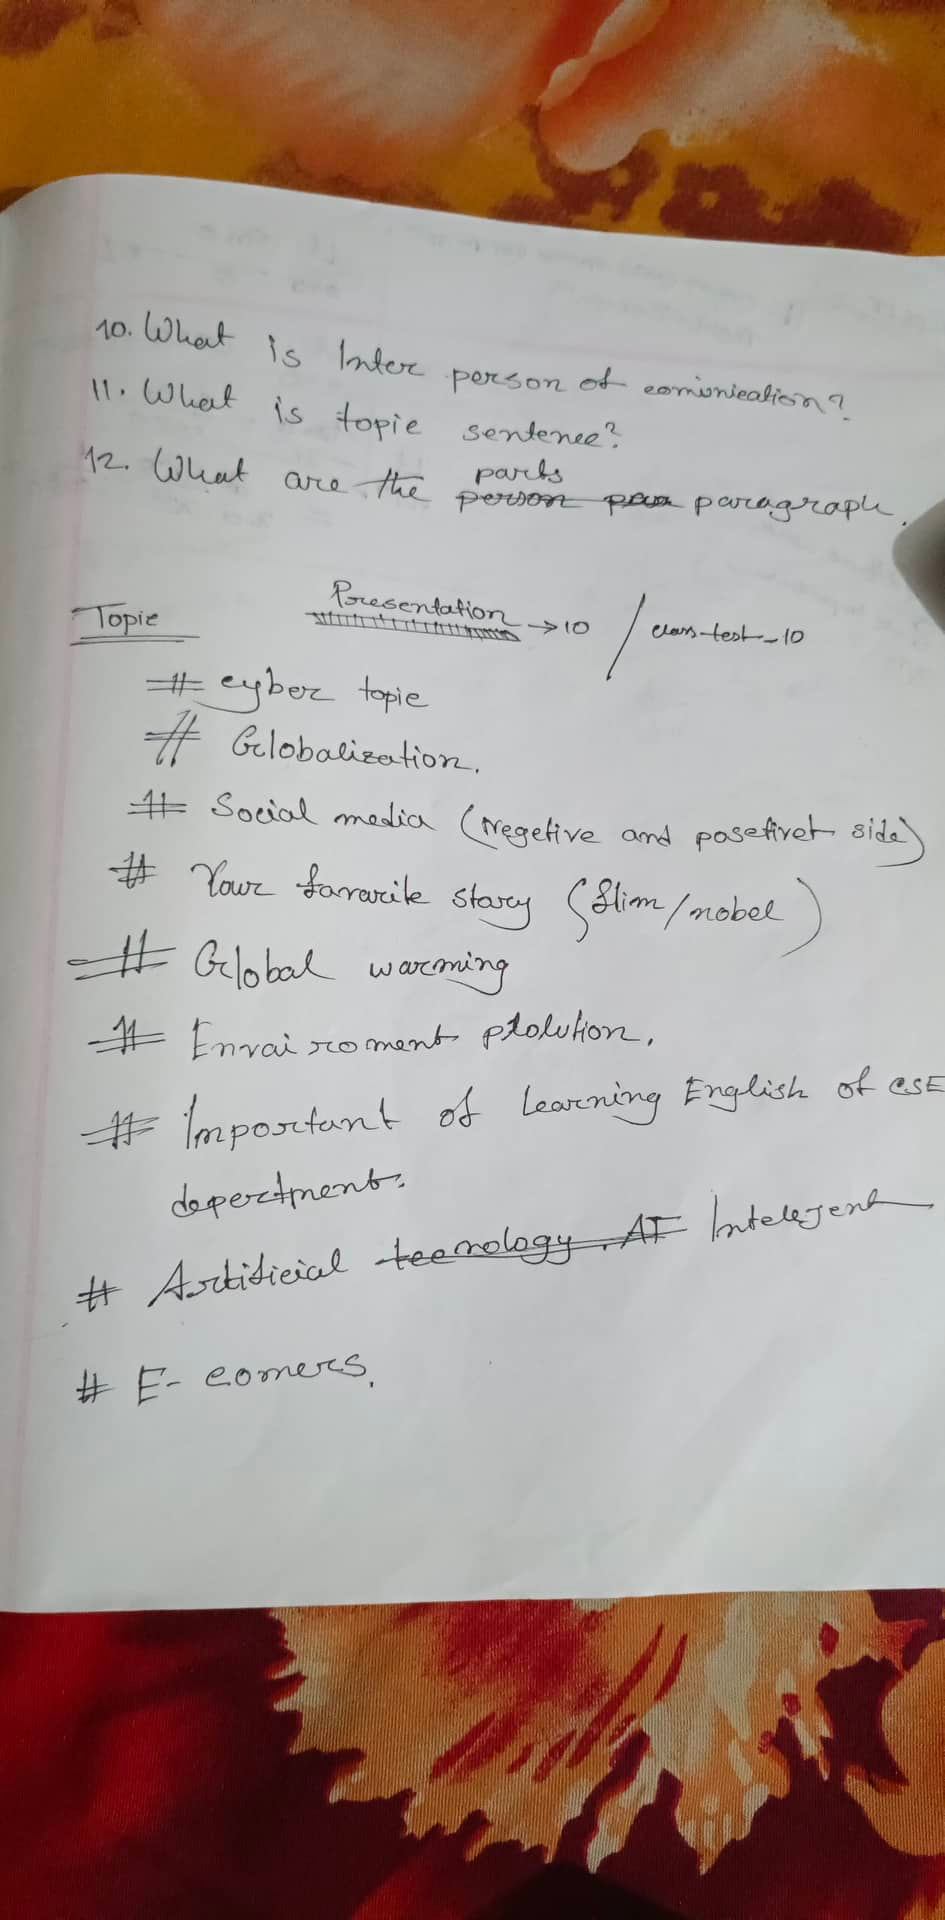 10. What is Inter person of comunication?
11. What is topic sentence?
12. What are the parts paragraph.
Topic Presentation → 10 / class test - 10
# cyber topic
# Globalization.
# Social media (negetive and posetivet side)
# Your favarite story (flim/nobel)
# Global warming
# Envairoment plolution.
# Important of learning English of CSE
depertment.
# Artificial tecnology. AI Intelejent
# E- comers.